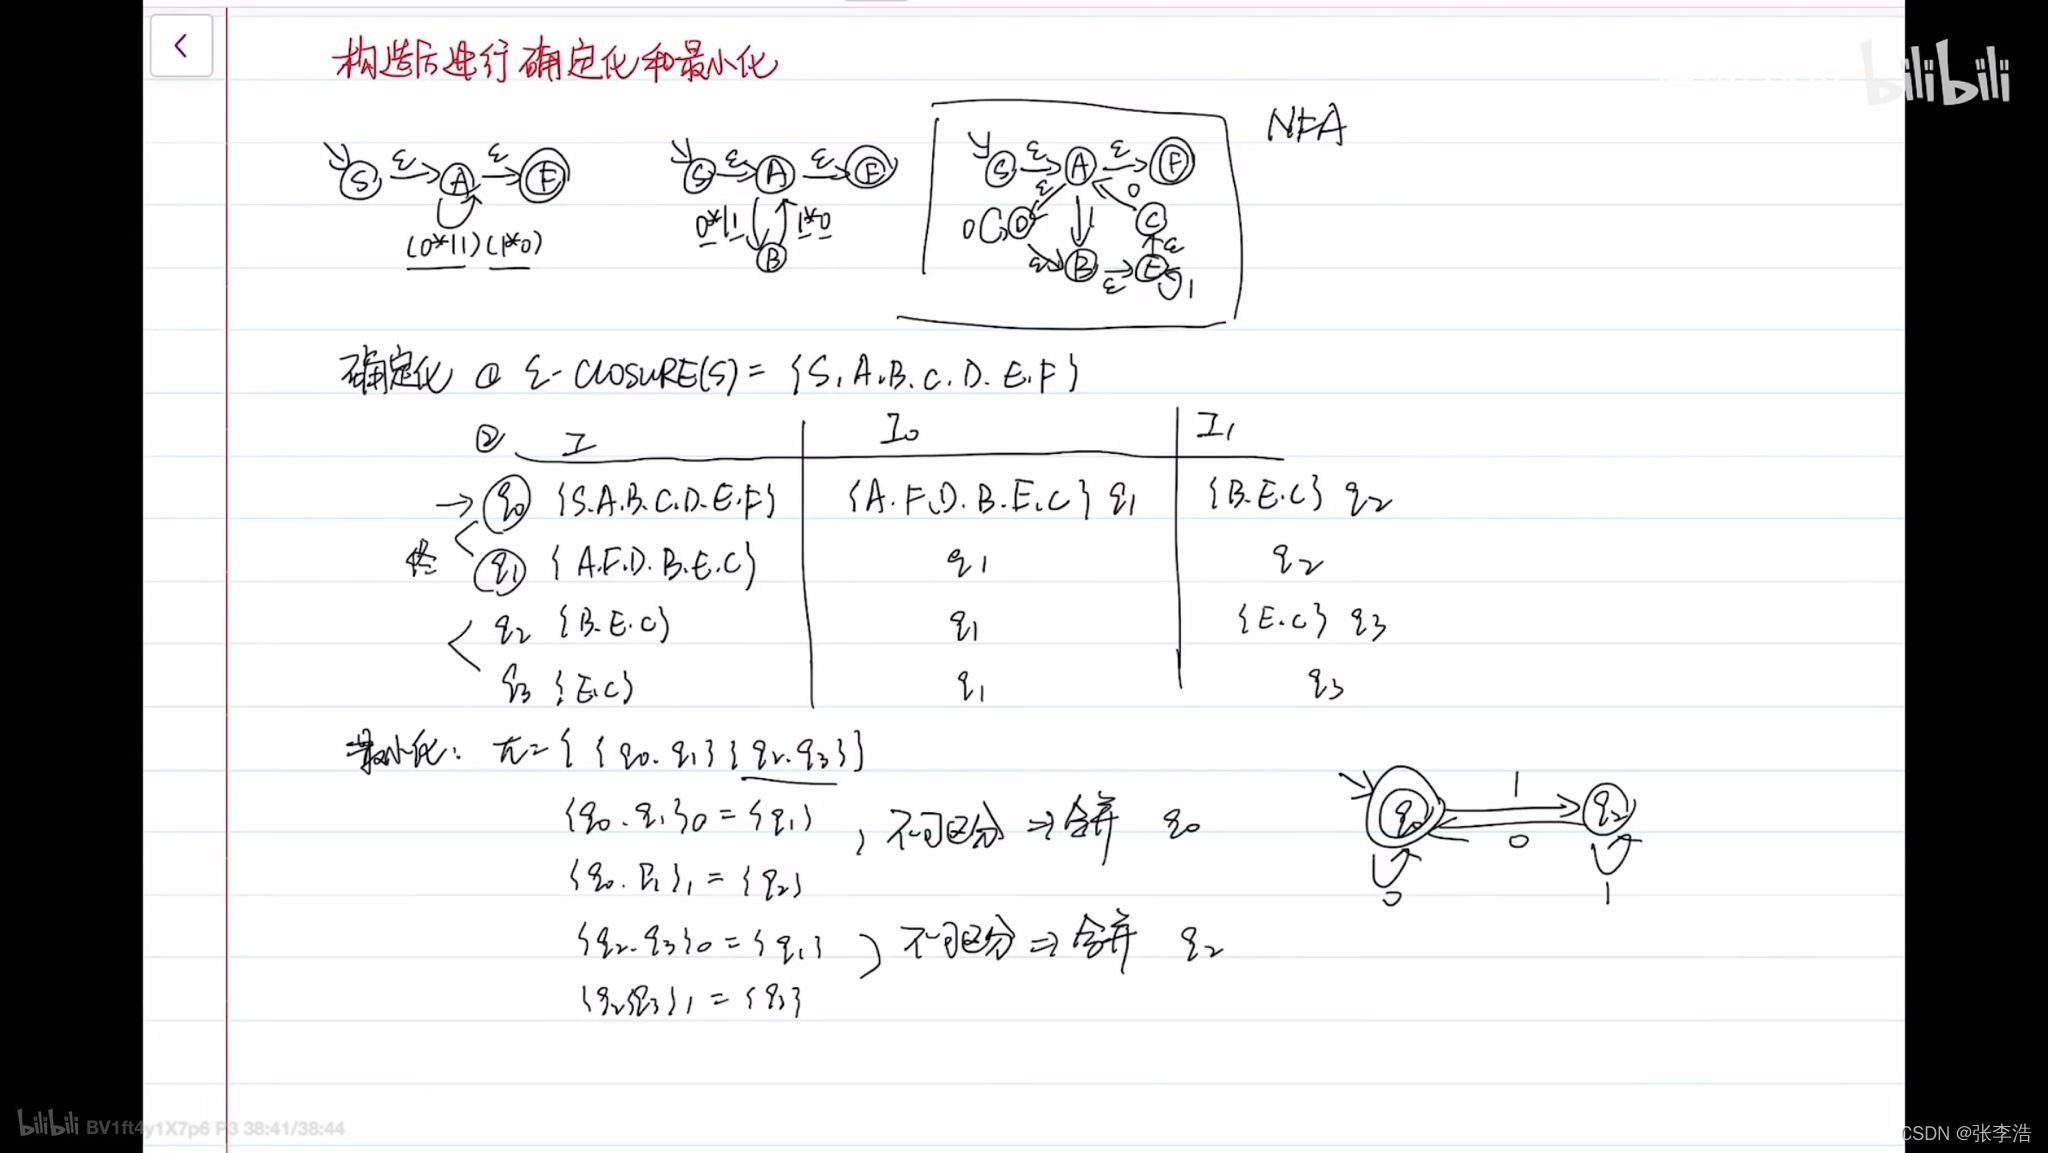 构造后进行确定化和最小化
bilibili
NFA
S ε A ε F
(0*|1)(1*0)
S ε A ε F
0*|1 1*0
B
S ε A ε F
ε 0
0 D 1 C
ε B ε E ε 1
确定化 ① ε-CLOSURE(S) = {S.A.B.C.D.E.F}
② I I₀ I₁
→ q₀ {S.A.B.C.D.E.F} {A.F.D.B.E.C} q₁ {B.E.C} q₂
终 q₁ {A.F.D.B.E.C} q₁ q₂
q₂ {B.E.C} q₁ {E.C} q₃
q₃ {E.C} q₁ q₃
最小化: π={ {q₀.q₁} {q₂.q₃} }
{q₀.q₁}₀ = {q₁} , 不可区分 ⇒ 合并 q₀
{q₀.q₁}₁ = {q₂}
{q₂.q₃}₀ = {q₁} 不可区分 ⇒ 合并 q₂
{q₂q₃}₁ = {q₃}
q₀ 1 q₂
0
0 1
bilibili BV1ft4y1X7p6 P3 38:41/38:44
CSDN @张李浩